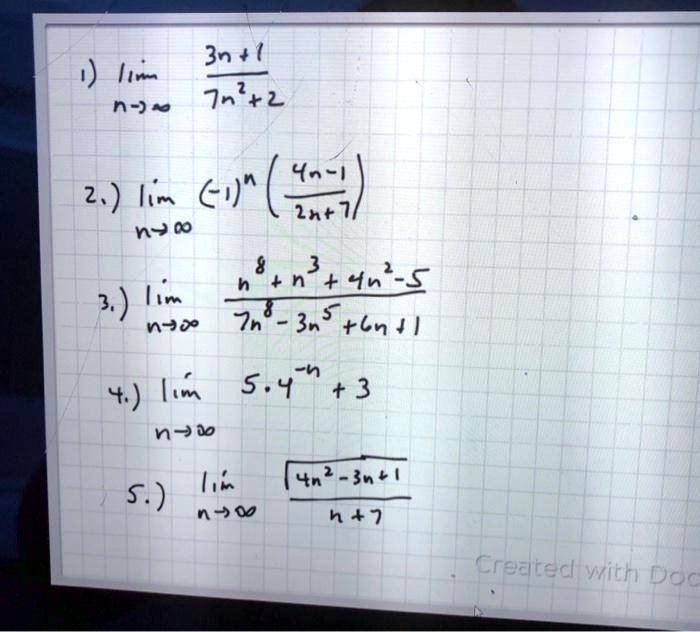 1) lim n→∞ (3n + 1)/(7n² + 2)
2.) lim n→∞ (-1)ⁿ ((4n-1)/(2n+7))
3.) lim n→∞ (n⁸ + n³ + 4n² - 5)/(7n⁸ - 3n⁵ + 6n + 1)
4.) lim n→∞ 5.4⁻ⁿ + 3
5.) lim n→∞ √(4n² - 3n + 1)/(n + 7)
Created with Doc